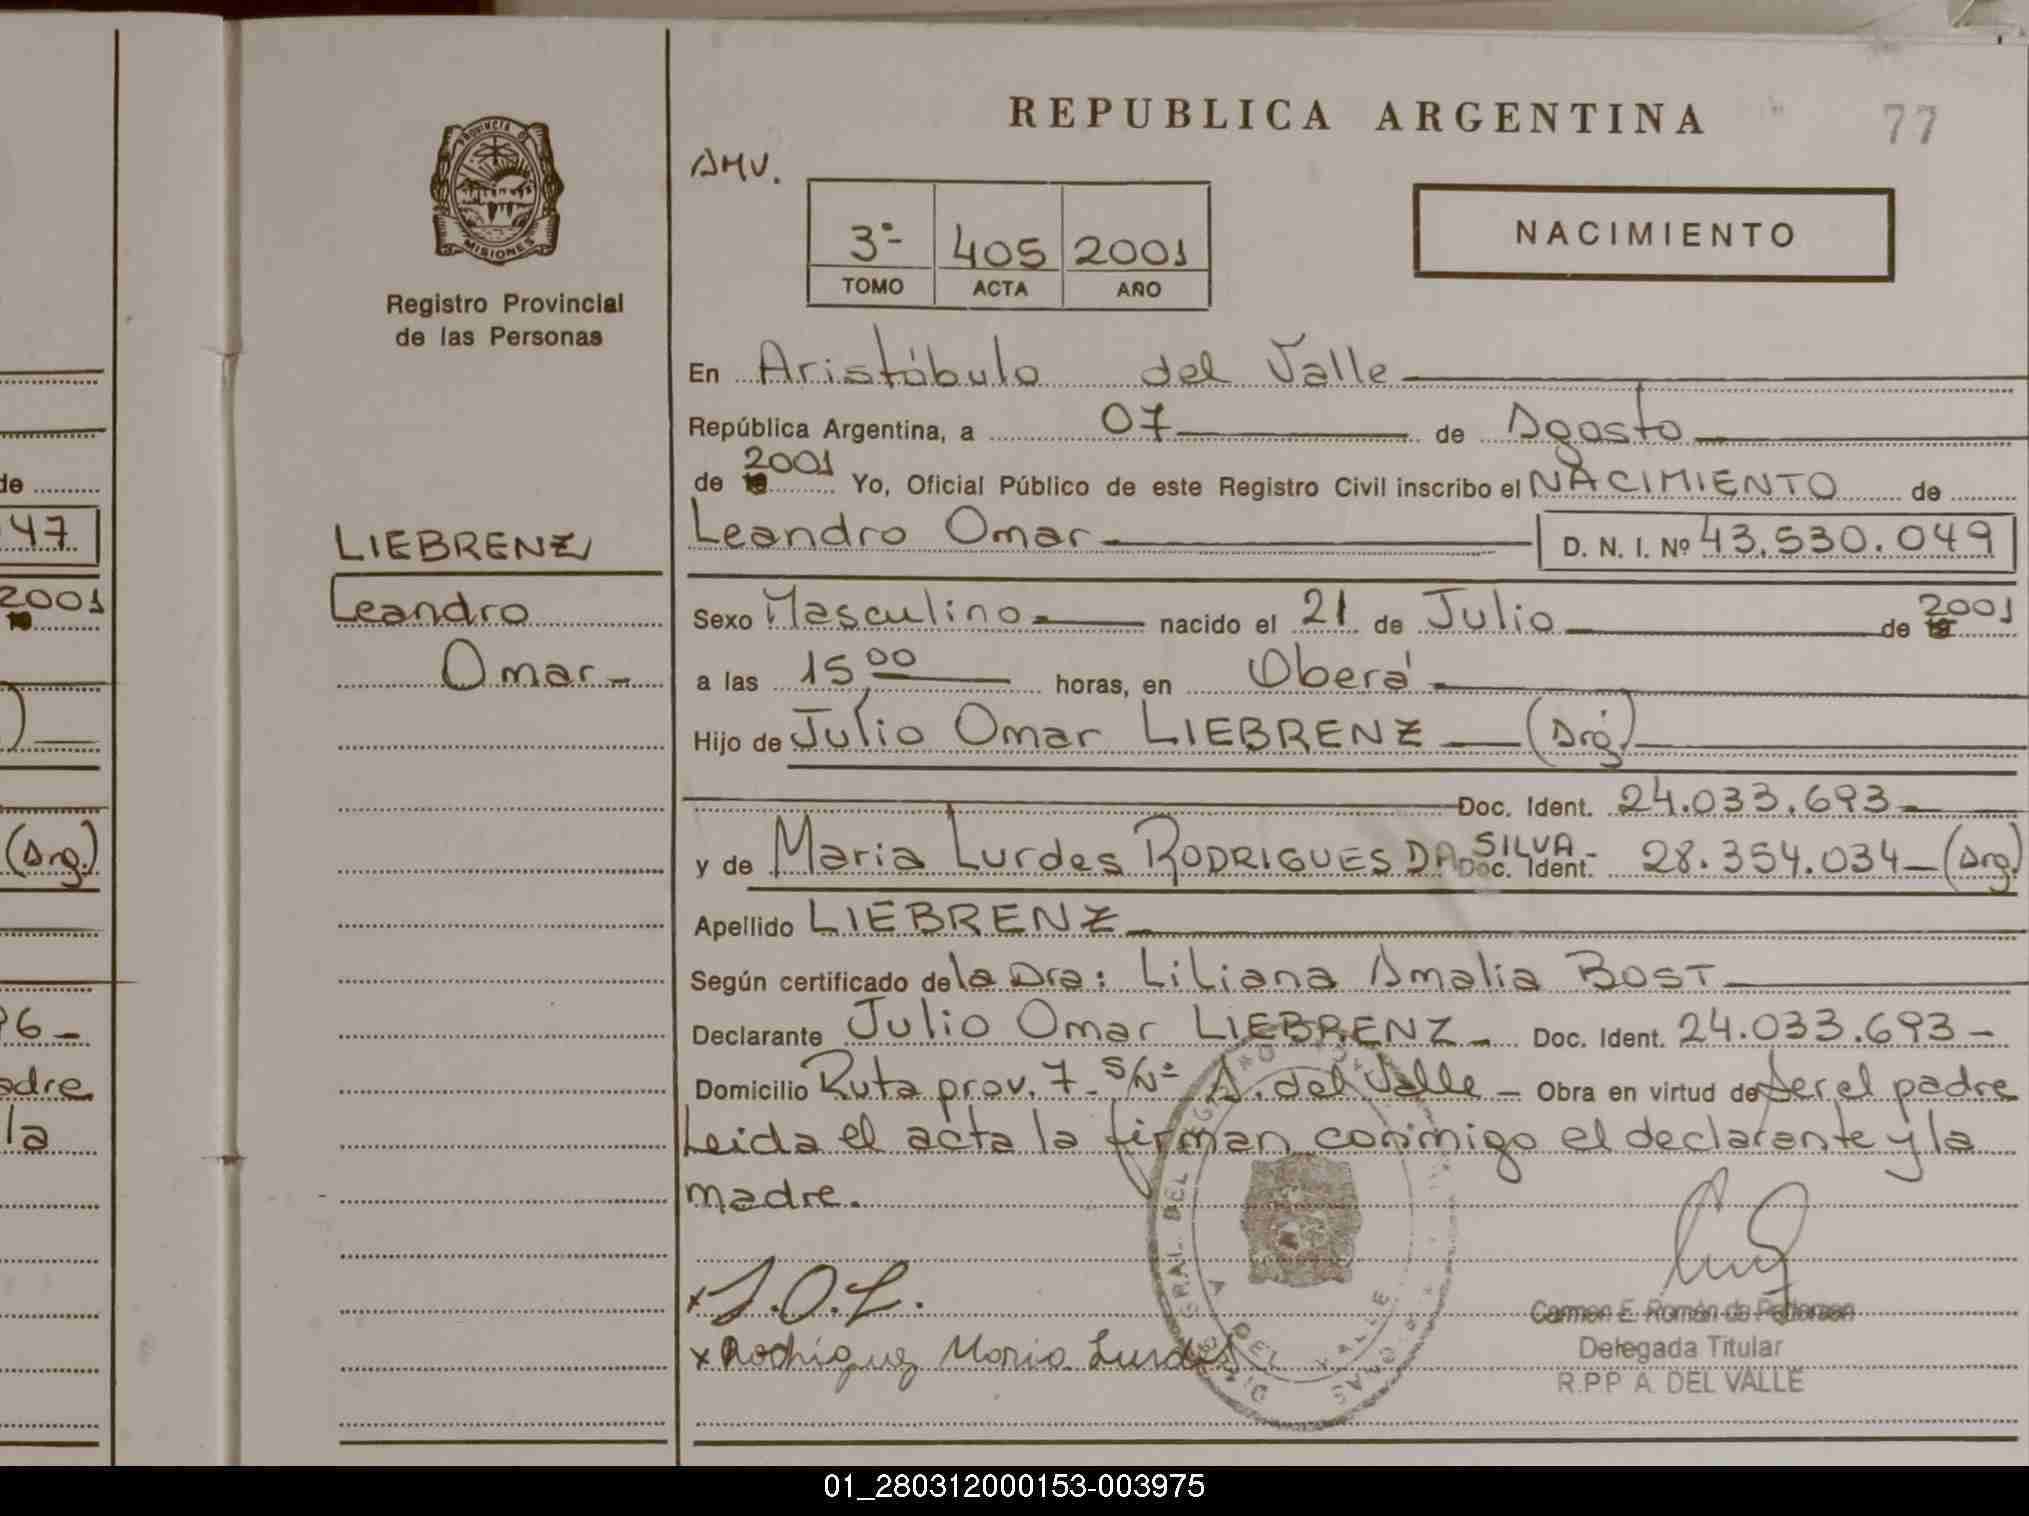 REPUBLICA ARGENTINA
77
PROVINCIA DE
MISIONES
Registro Provincial
de las Personas
AMV.
3º- 405 2001
TOMO ACTA AÑO
NACIMIENTO
En Aristóbulo del Valle
República Argentina, a 07 de Agosto
de 2001 Yo, Oficial Público de este Registro Civil inscribo el NACIMIENTO de
Leandro Omar D. N. I. Nº 43.530.049
LIEBRENZ
Leandro
Omar-
Sexo Masculino nacido el 21 de Julio de 2001
a las 15,00 horas, en Oberá
Hijo de Julio Omar LIEBRENZ (Arg.)
Doc. Ident. 24.033.693-
y de Maria Lurdes RODRIGUES DA SILVA- Doc. Ident. 28.354.034-(Arg.)
Apellido LIEBRENZ
Según certificado de la Dra: Liliana Amalia BOST
Declarante Julio Omar LIEBRENZ- Doc. Ident. 24.033.693-
Domicilio Ruta prov. 7- S/Nº A. del Valle- Obra en virtud de ser el padre
Leida el acta la firman conmigo el declarante y la
madre.
x J.O.L.
x Rodriguez Maria Lurdes
Carmen E. Román de Pedersen
Delegada Titular
R.P.P A. DEL VALLE
de
47
2001
)
(Arg.)
96-
adre
la
01_280312000153-003975